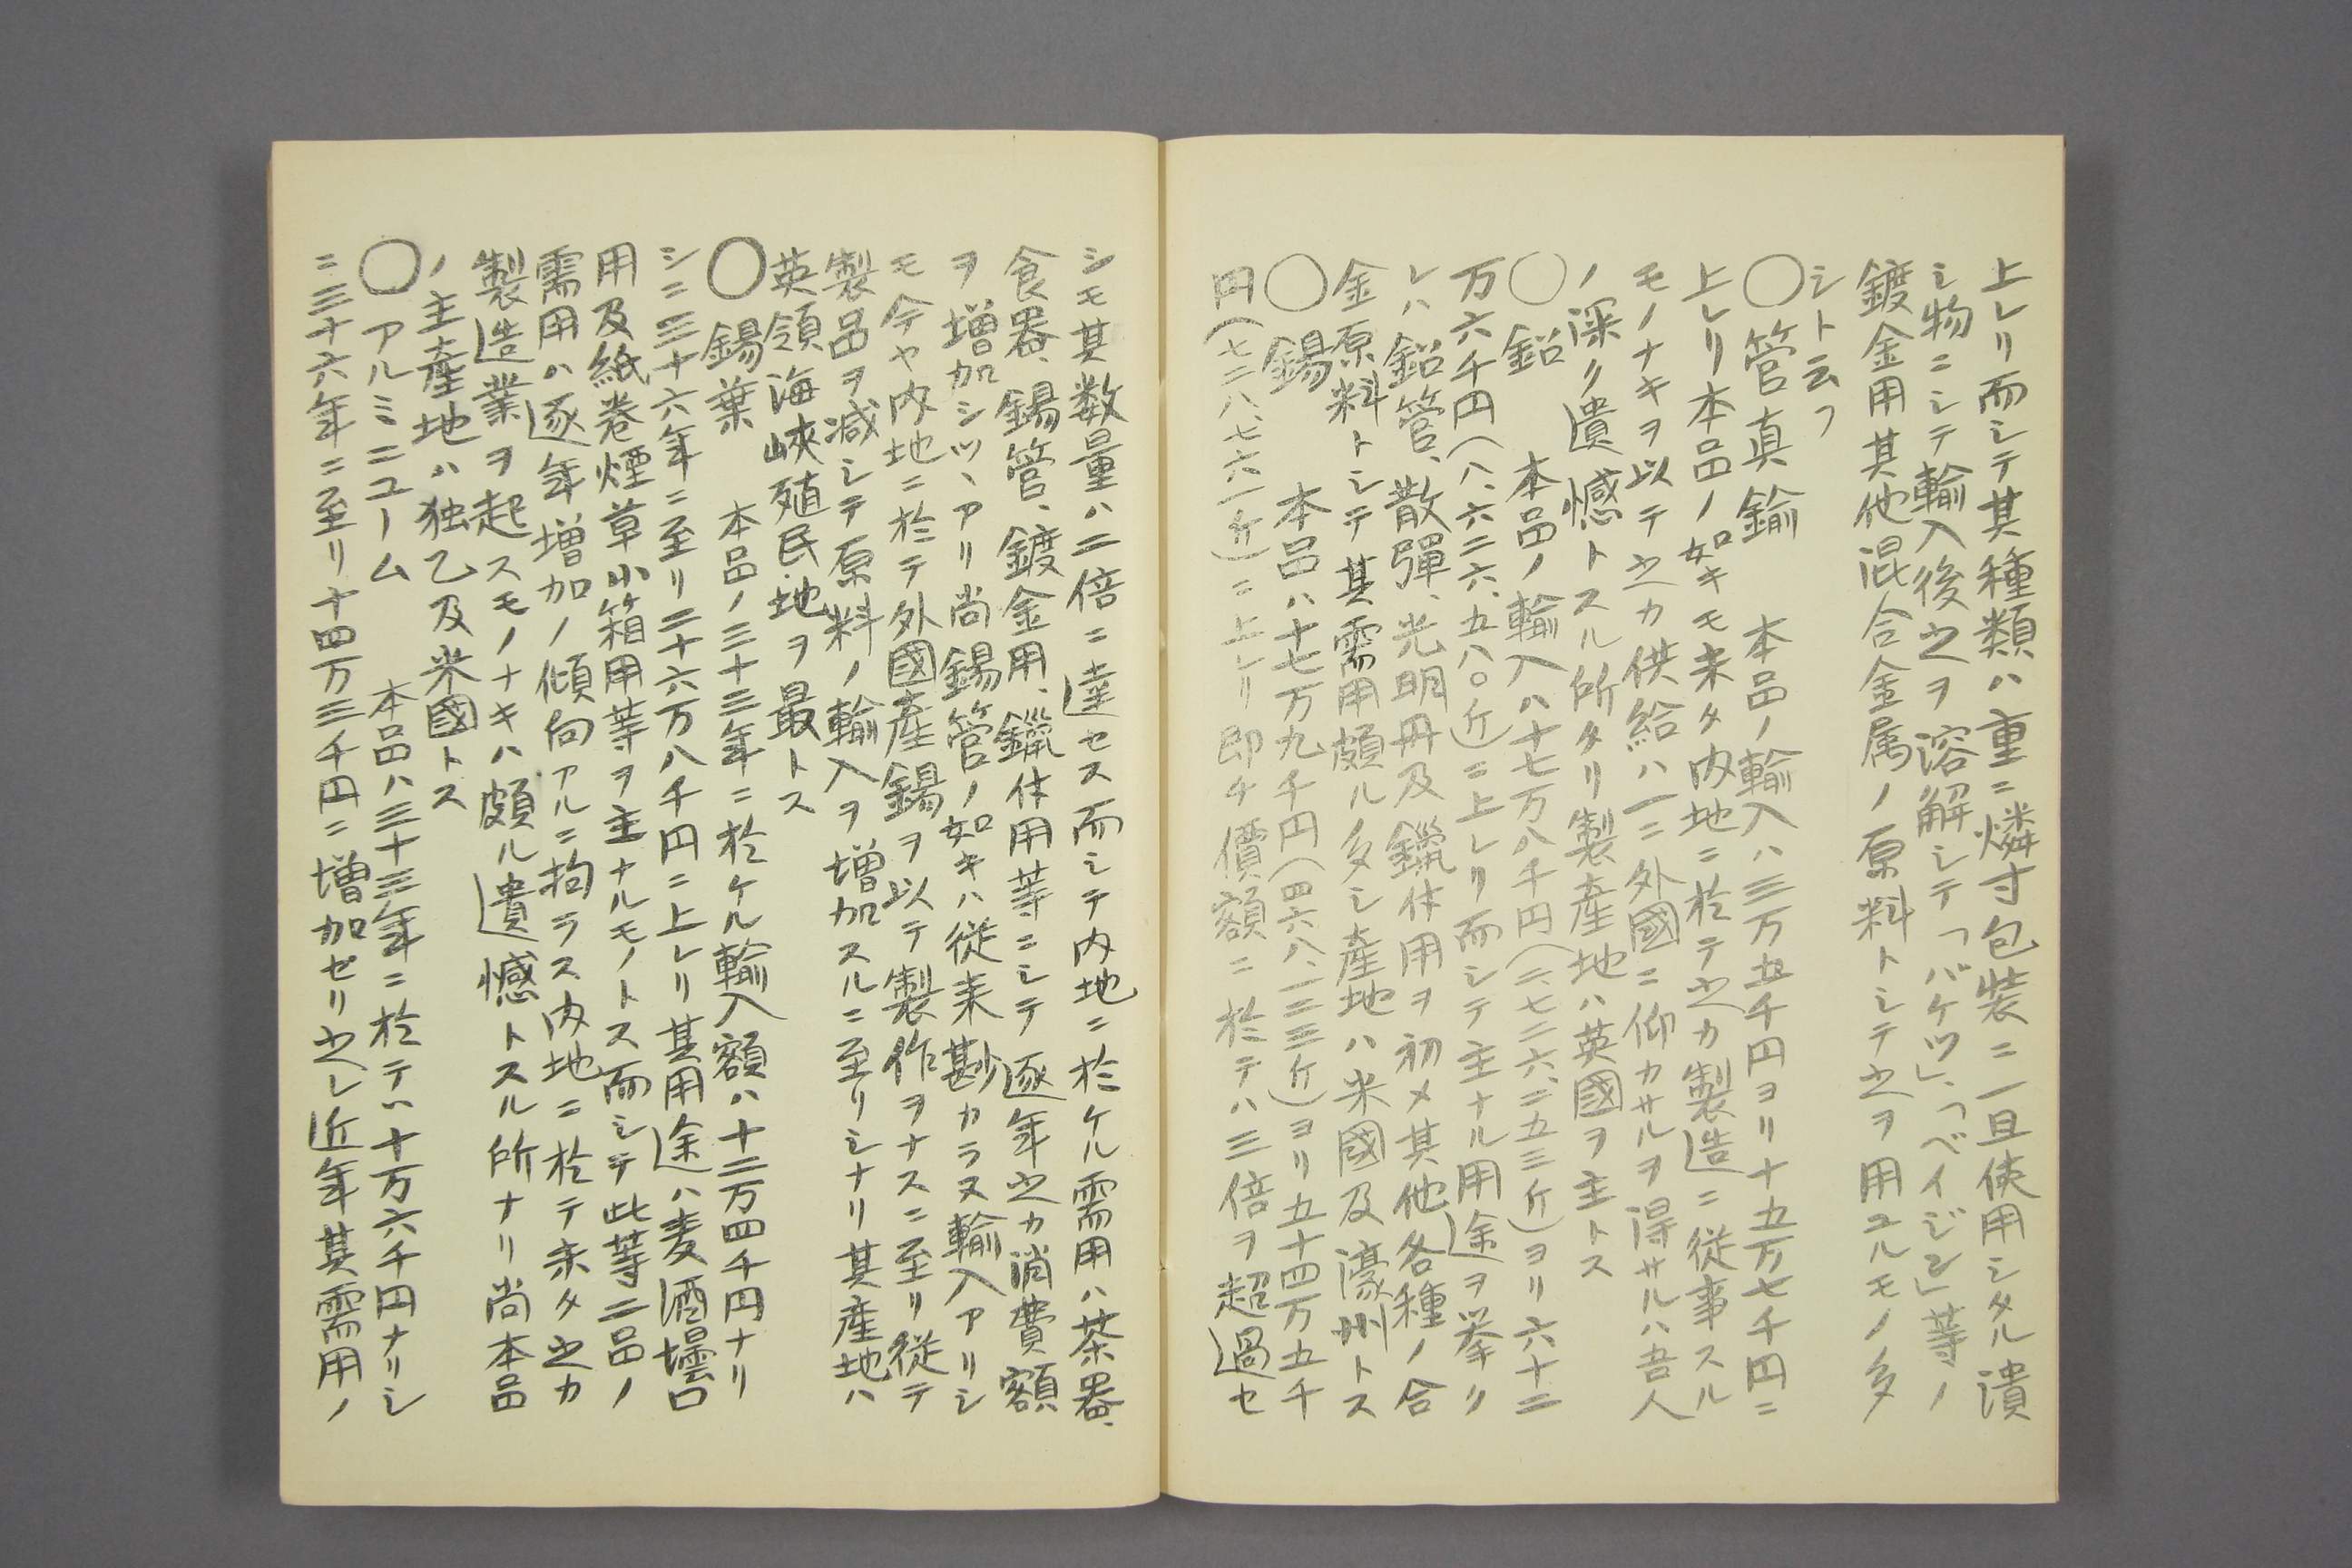 上レリ而シテ其種類ハ重ニ燐寸包装ニ一旦使用シタル潰
シ物ニシテ輸入後之ヲ溶解シテ「バケツ」、「ベイジン」等ノ
鍍金用其他混合金属ノ原料トシテ之ヲ用ユルモノ多
シト云フ
〇管真鍮　本品ノ輸入ハ三万五千円ヨリ十五万七千円ニ
上レリ本品ノ如キモ未タ内地ニ於テ之カ製造ニ従事スル
モノナキヲ以テ之カ供給ハ一ニ外國ニ仰カサルヲ得サルハ吾人
ノ深ク遺憾トスル所タリ製産地ハ英國ヲ主トス
〇鉛　本品ノ輸入ハ十七万八千円(二、七二六、二五三斤)ヨリ六十二
万六千円(八、六二六、五八〇斤)ニ上レリ而シテ主ナル用途ヲ挙ク
レハ鉛管、散彈、光明丹及鑞体用ヲ初メ其他各種ノ合
金原料トシテ其需用頗ル多シ産地ハ米國及濠州トス
〇錫　本品ハ十七万九千円(四六八、一三三斤)ヨリ五十四万五千
円(七二八、七六一斤)ニ上レリ即チ價額ニ於テハ三倍ヲ超過セ
シモ其数量ハ二倍ニ達セス而シテ内地ニ於ケル需用ハ茶器、
食器、錫管、鍍金用、鑞体用等ニシテ逐年之カ消費額
ヲ増加シツヽアリ尚錫管ノ如キハ従来尠カラヌ輸入アリシ
モ今ヤ内地ニ於テ外國産錫ヲ以テ製作ヲナスニ至リ従テ
製品ヲ減シテ原料ノ輸入ヲ増加スルニ至リシナリ其産地ハ
英領海峡殖民地ヲ最トス
〇錫葉　本品ノ三十三年ニ於ケル輸入額ハ十二万四千円ナリ
シニ三十六年ニ至リ二十六万八千円ニ上レリ其用途ハ麦酒壜口
用及紙巻煙草小箱用等ヲ主ナルモノトス而シテ此等二品ノ
需用ハ逐年増加ノ傾向アルニ拘ラス内地ニ於テ未タ之カ
製造業ヲ起スモノナキハ頗ル遺憾トスル所ナリ尚本品
ノ主産地ハ独乙及米國トス
〇アルミニユーム　本品ハ三十三年ニ於テハ十万六千円ナリシ
ニ三十六年ニ至リ十四万三千円ニ増加セリ之レ近年其需用ノ